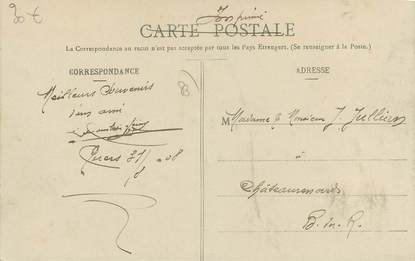 30 €
Imprimé
CARTE POSTALE
La Correspondance au recto n'est pas acceptée par tous les Pays Etrangers. (Se renseigner à la Poste.)
CORRESPONDANCE
Meilleurs Souvenirs
d'un ami
ADRESSE
M Madame & Monsieur J. Jullien
à
Châteaurenard
B. du R.